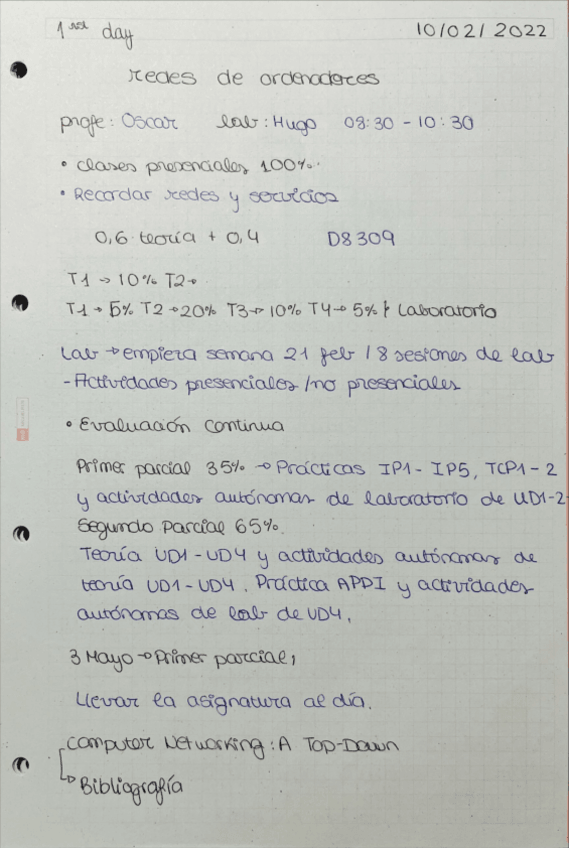 1rst day 10/02/2022
redes de ordenadores
profe: Oscar lab: Hugo 08:30 - 10:30
• clases presenciales 100%.
• Recordar redes y servicios
0,6 teoría + 0,4 D8309
T1 → 10% T2→
T1 → 5% T2 → 20% T3 → 10% T4 → 5% } Laboratorio
Lab → empieza semana 21 feb / 8 sesiones de lab
- Actividades presenciales / no presenciales
• Evaluación continua
Primer parcial 35% → Prácticas IP1 - IP5, TCP1 - 2
y actividades autónomas de laboratorio de UD1-2
Segundo Parcial 65%.
Teoría UD1 - UD4 y actividades autónomas de
teoría UD1 - UD4. Práctica APDI y actividades
autónomas de lab de UD4.
3 Mayo → Primer parcial,
Llevar la asignatura al día.
Computer Networking: A Top-Down
↳ Bibliografía